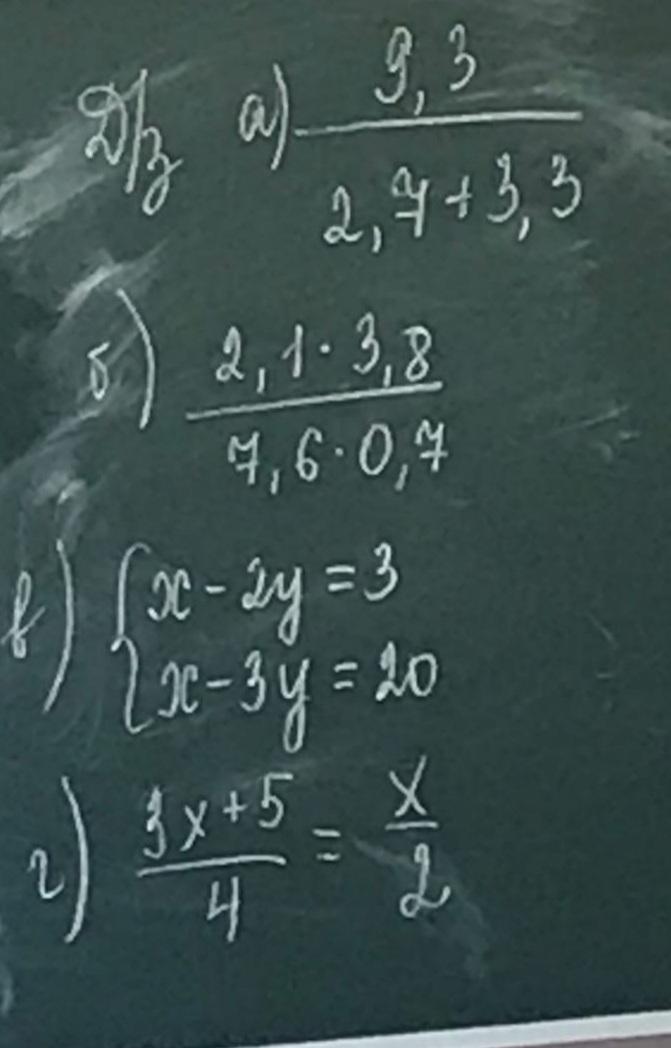 Д/з а) 9,3 / 2,7+3,3
б) 2,1·3,8 / 7,6·0,7
в) { x-2y=3
x-3y=20
г) 3x+5 / 4 = x / 2